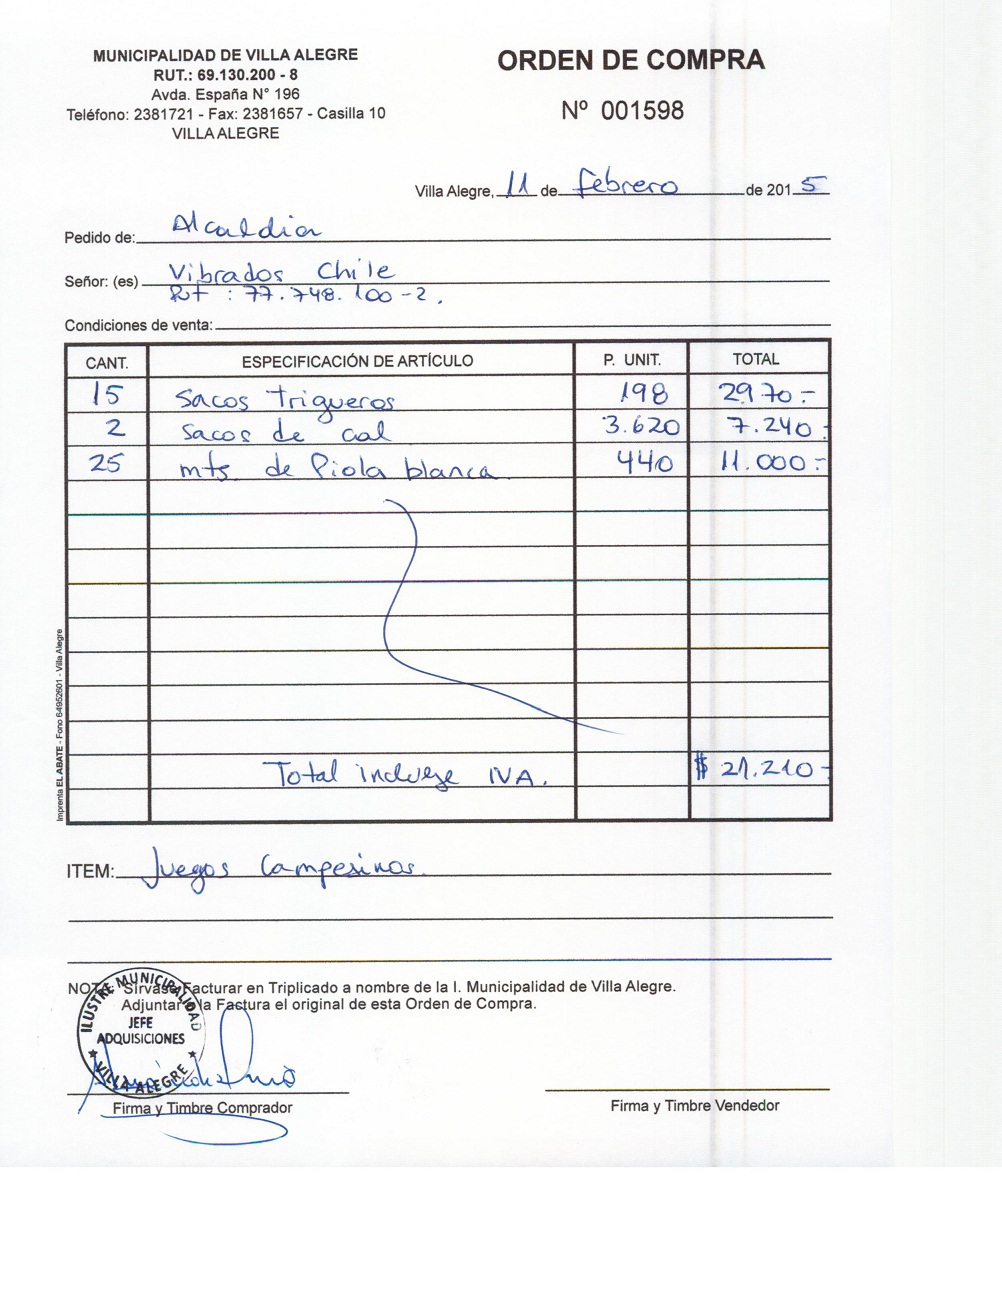 MUNICIPALIDAD DE VILLA ALEGRE
RUT.: 69.130.200 - 8
Avda. España N° 196
Teléfono: 2381721 - Fax: 2381657 - Casilla 10
VILLA ALEGRE
ORDEN DE COMPRA
Nº 001598
Villa Alegre, 11 de febrero de 2015
Pedido de: Alcaldia
Señor: (es) Vibrados Chile
Rut : 77.748.100-2.
Condiciones de venta:
CANT. ESPECIFICACIÓN DE ARTÍCULO P. UNIT. TOTAL
15 Sacos trigueros 198 2970.-
2 Sacos de cal 3.620 7.240.
25 mts. de Piola blanca 440 11.000.-
Total incluye IVA. $ 21.210-
Imprenta EL ABATE - Fono 64952601 - Villa Alegre
ITEM: Juegos Campesinos.
NOTA: Sírvase Facturar en Triplicado a nombre de la I. Municipalidad de Villa Alegre.
Adjuntar a la Factura el original de esta Orden de Compra.
ILUSTRE MUNICIPALIDAD
JEFE
ADQUISICIONES
★ VILLA ALEGRE ★
Firma y Timbre Comprador
Firma y Timbre Vendedor